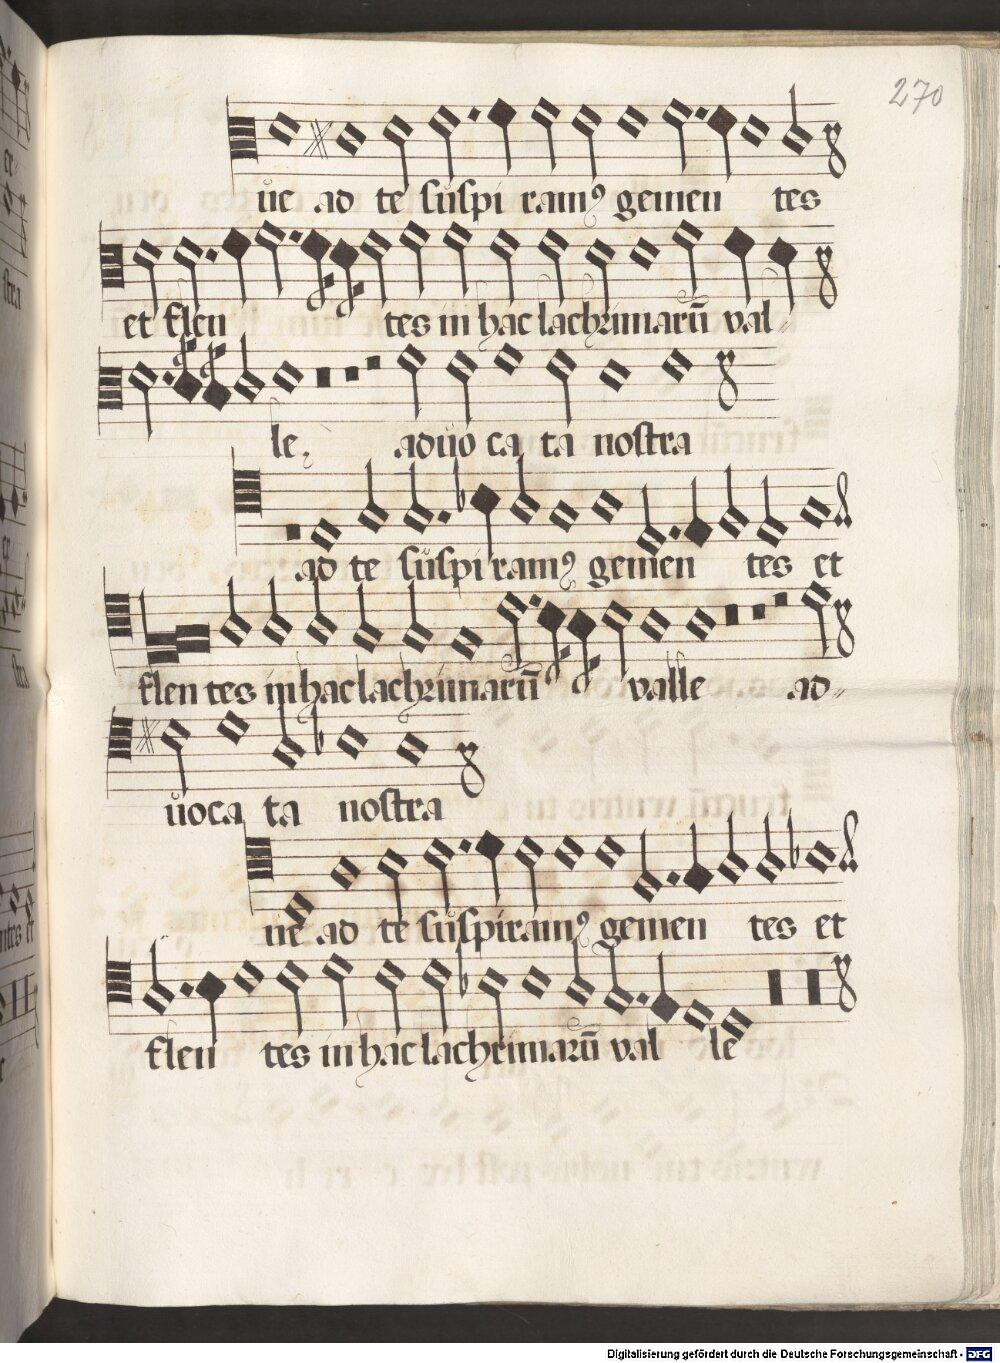 270
ue ad te suspi ramꝰ gemen tes
et flen tes in hac lachrimarū val-
le, aduo ca ta nostra
ad te suspi ramꝰ gemen tes et
flen tes in hac lachrimarū valle ad-
uoca ta nostra
ue ad te suspiramꝰ gemen tes et
flen tes in hac lachrimarū val le
Digitalisierung gefördert durch die Deutsche Forschungsgemeinschaft - DFG